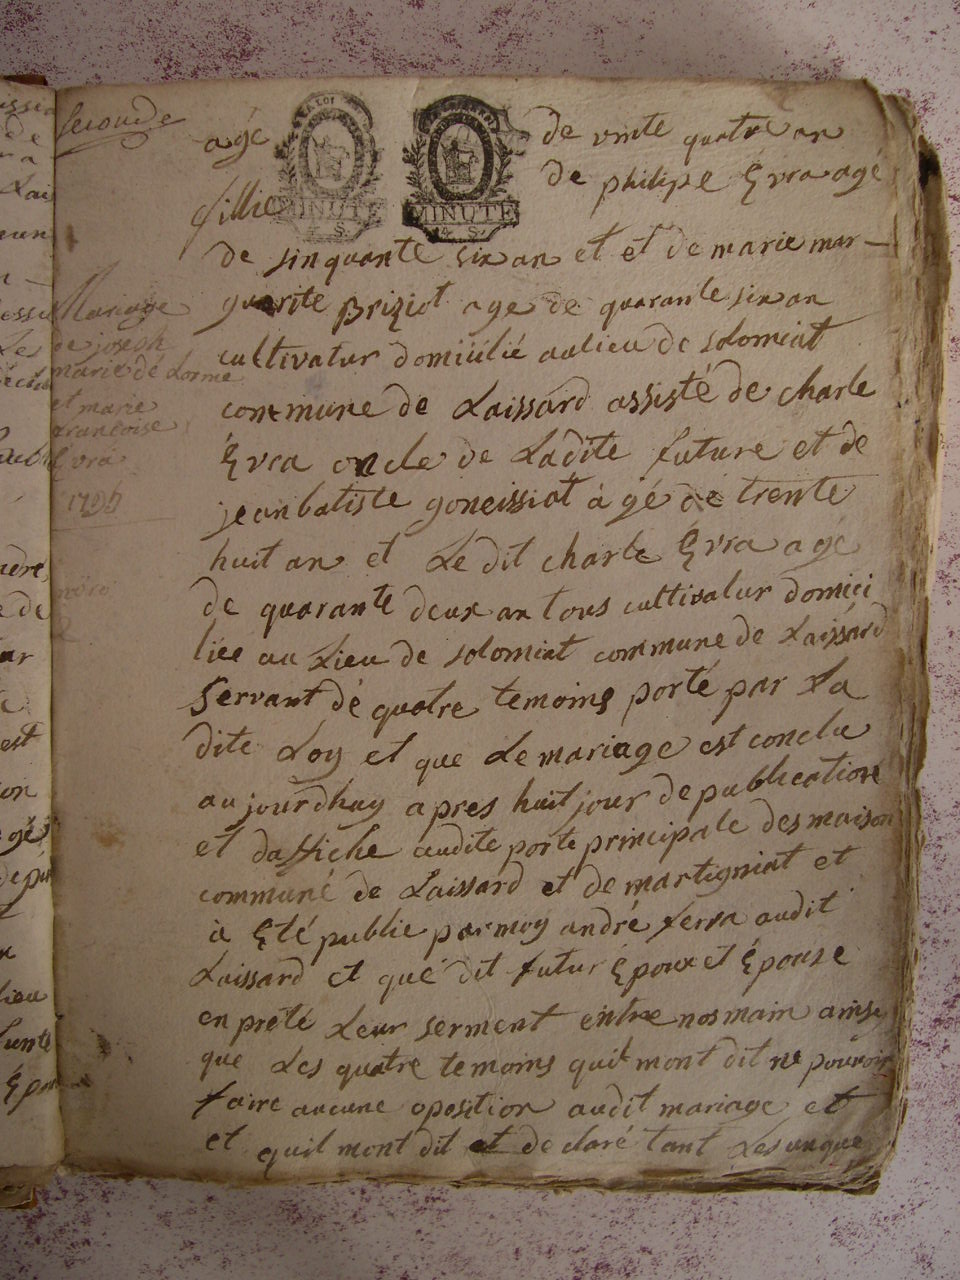 seconde
agé de vinte quatre an
fillie de philipe Evra agé
de sinquante six an et et de marie mar-
guerite Briziot age de quarante six an
cultivatur domiilié aulieu de solomiat
commune de Laissard assisté de charle
Evra oncle de Ladite future et de
jean batiste goneissiat àgé de trente
huit an et Le dit charle Evra agé
de quarante deux an tous cultivatur domici
liée au Lieu de solomiat commune de Laissard
servant dé quatre temoins porté par La
dite Loy et que Le mariage est conclu
aujourdhuy apres huit jour de publication
et daffiche audite porte principale des maison
communé de Laissard et de martigniat et
à Eté publie par moy andré ferra audit
Laissard et qué dit futur Epoux et Epouse
en preté Leur serment entre nos main ainsy
que Les quatre temoins quil mont dit ne pouvoir
faire aucune oposition audit mariage et
et quil mont dit et declaré tant Les un que
Mariage
de joseph
marie dé Lorme
et marie
francoise
Evra
LA LOI
MINUTE
4 S.
MINUTE
4 S.